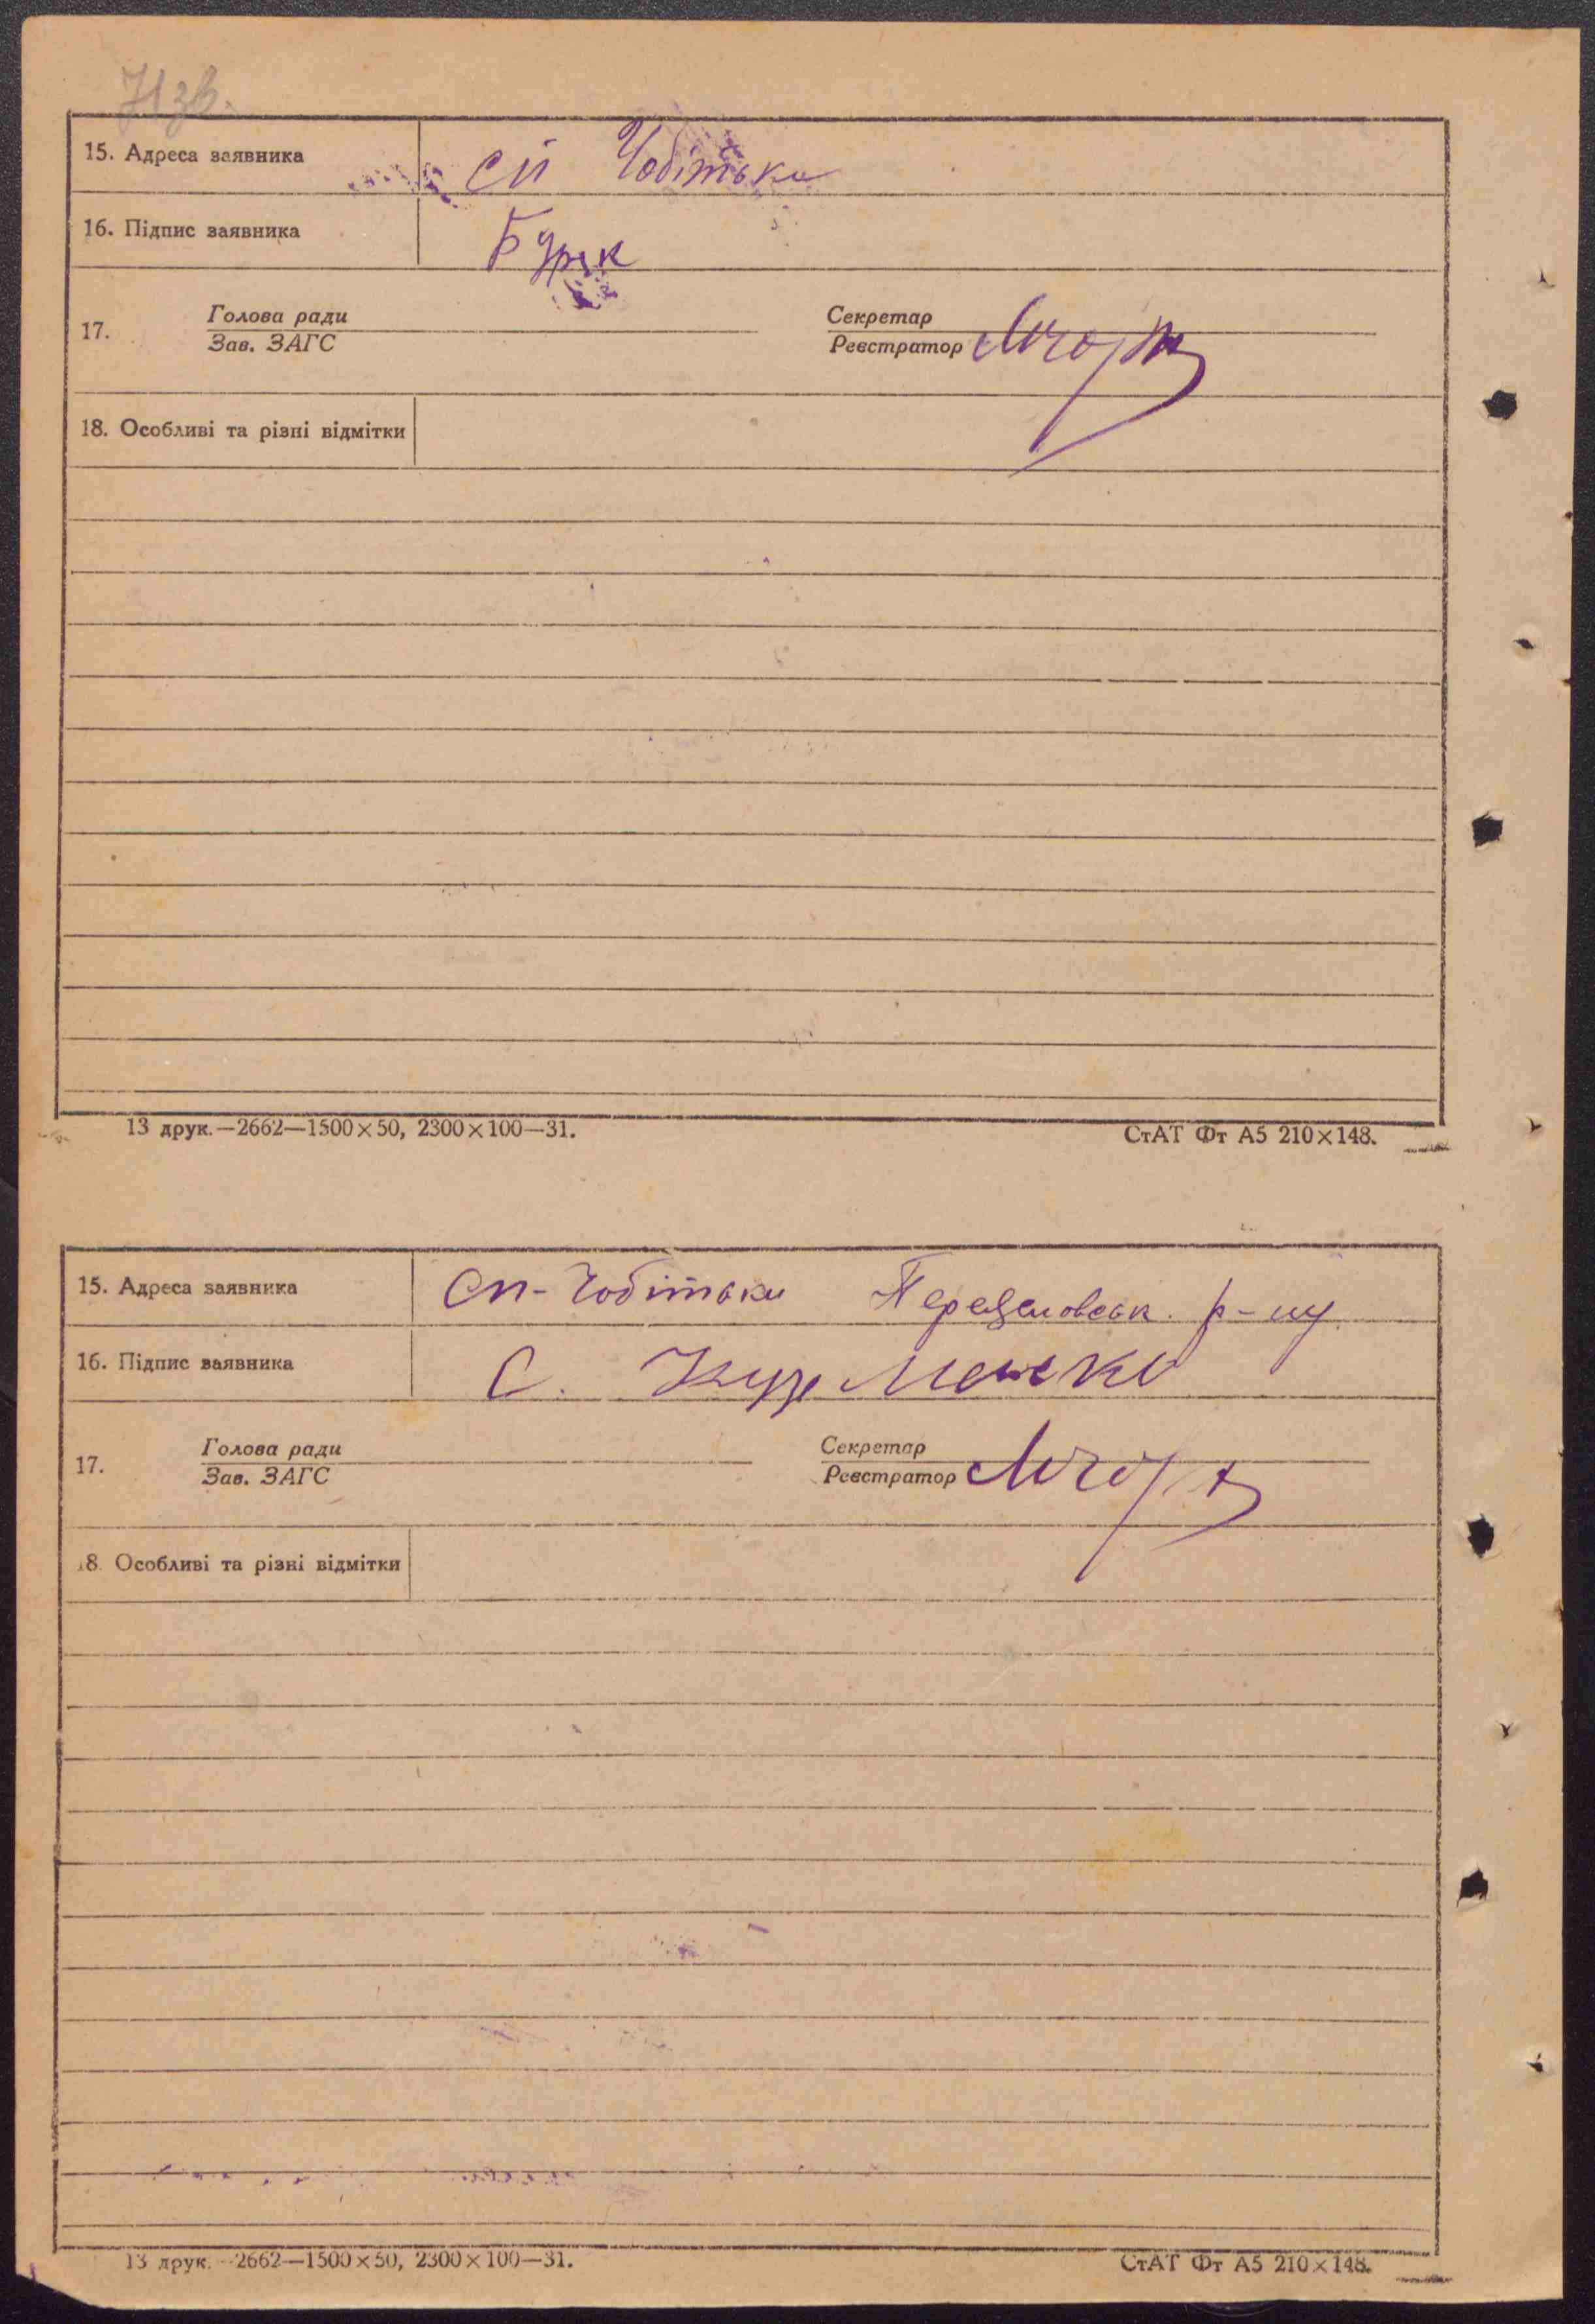 71зв.
15. Адреса заявника сп Чобітька
16. Підпис заявника Буряк
17. Голова ради Секретар
Зав. ЗАГС Реєстратор
18. Особливі та різні відмітки
13 друк.—2662—1500×50, 2300×100—31. СтАТ Фт А5 210×148.
15. Адреса заявника сп-Чобітьки р-ну
16. Підпис заявника С. Кузьменко
17. Голова ради Секретар
Зав. ЗАГС Реєстратор
18. Особливі та різні відмітки
13 друк.—2662—1500×50, 2300×100—31. СтАТ Фт А5 210×148.